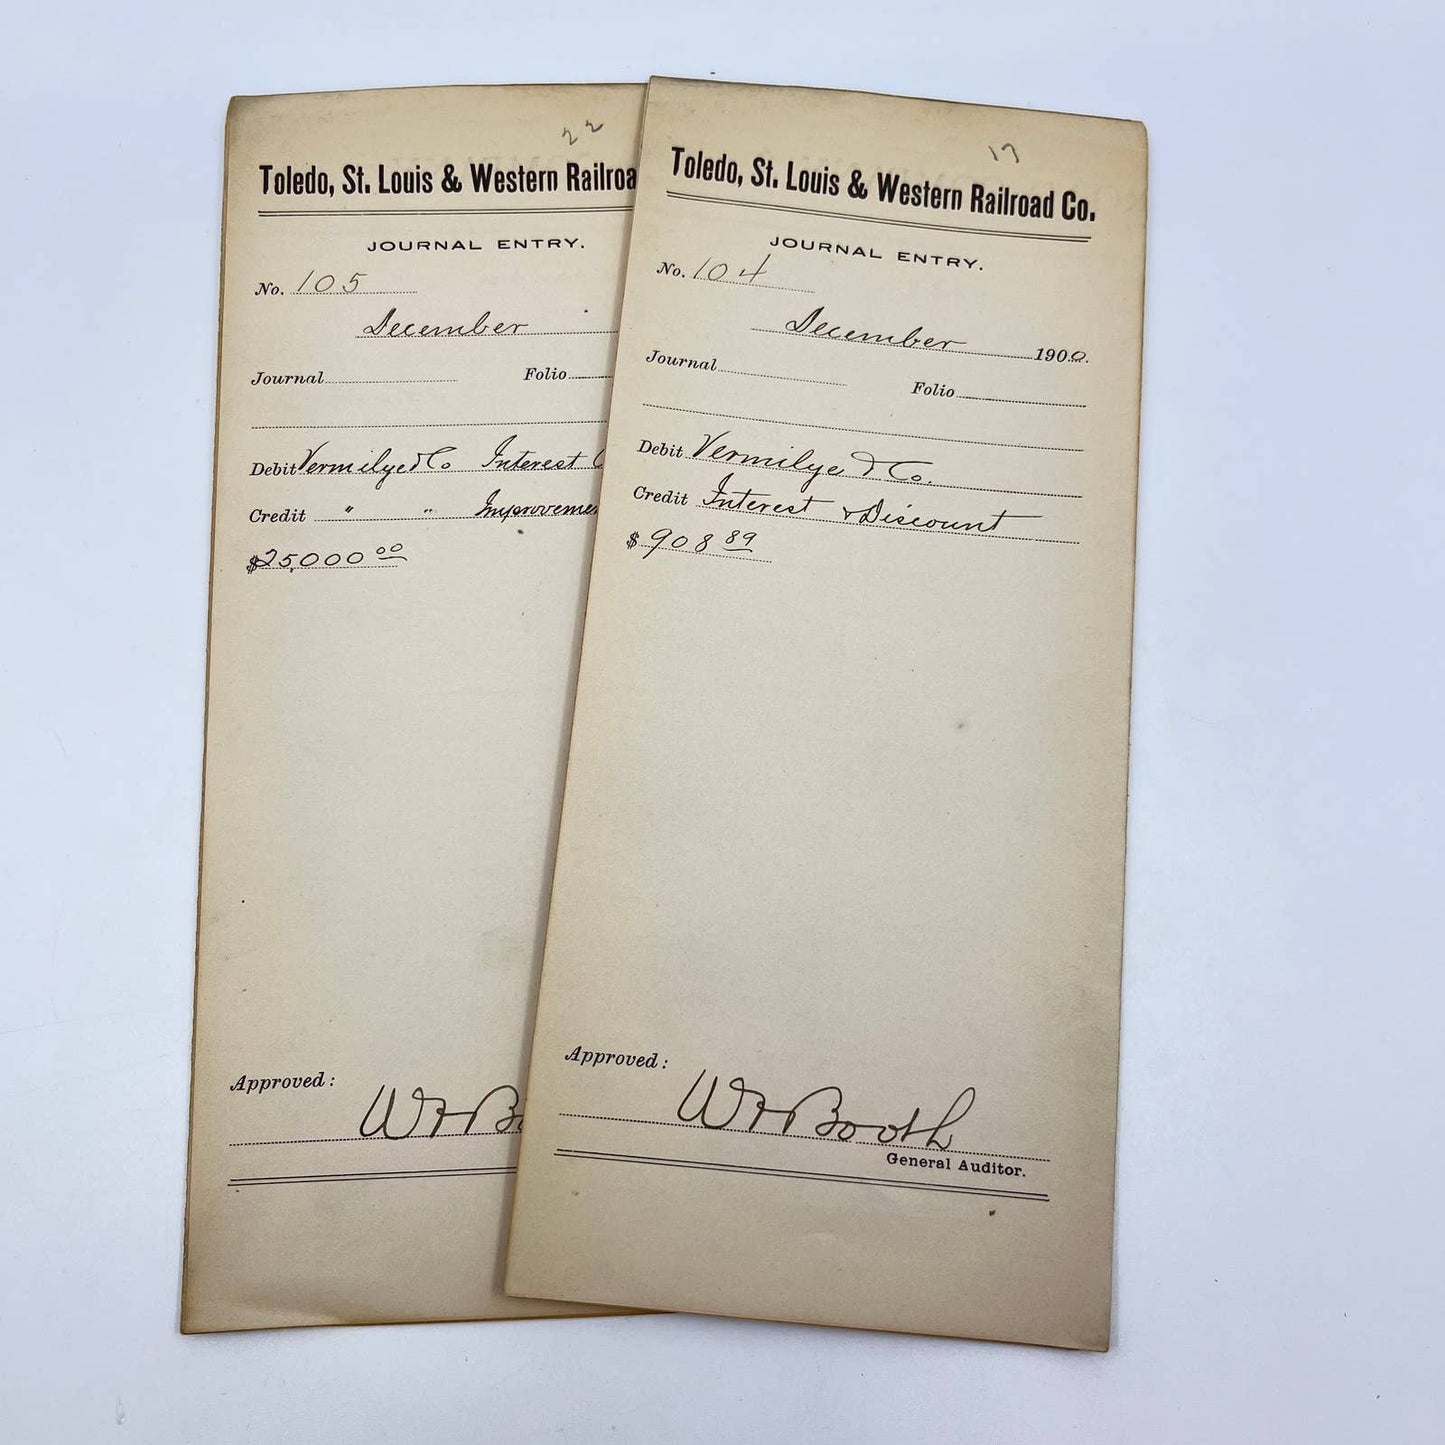 22
Toledo, St. Louis & Western Railroa
JOURNAL ENTRY.
No. 105
December
Journal Folio
Debit Vermilye & Co Interest
Credit " "
$25,000 00
Approved:
W
17
Toledo, St. Louis & Western Railroad Co.
JOURNAL ENTRY.
No. 104
December 1900.
Journal
Folio
Debit Vermilye & Co.
Credit Interest & Discount
$ 908 89
Approved:
Booth
General Auditor.